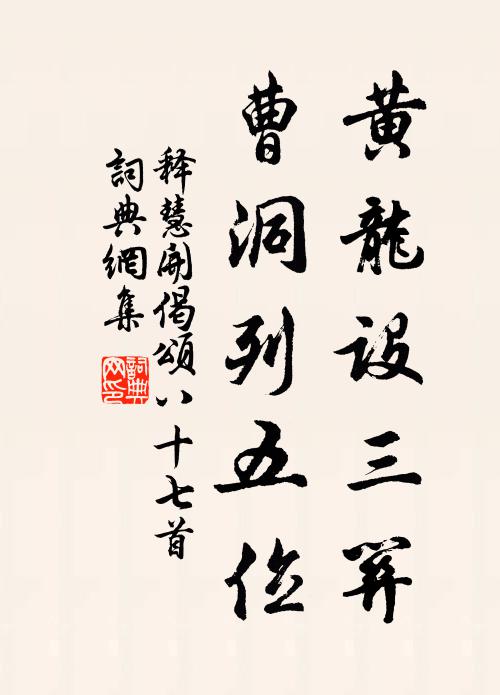 黄龍設三關
曹洞列五位
释慧開偈頌八十七首
詞典網集
詞典網印